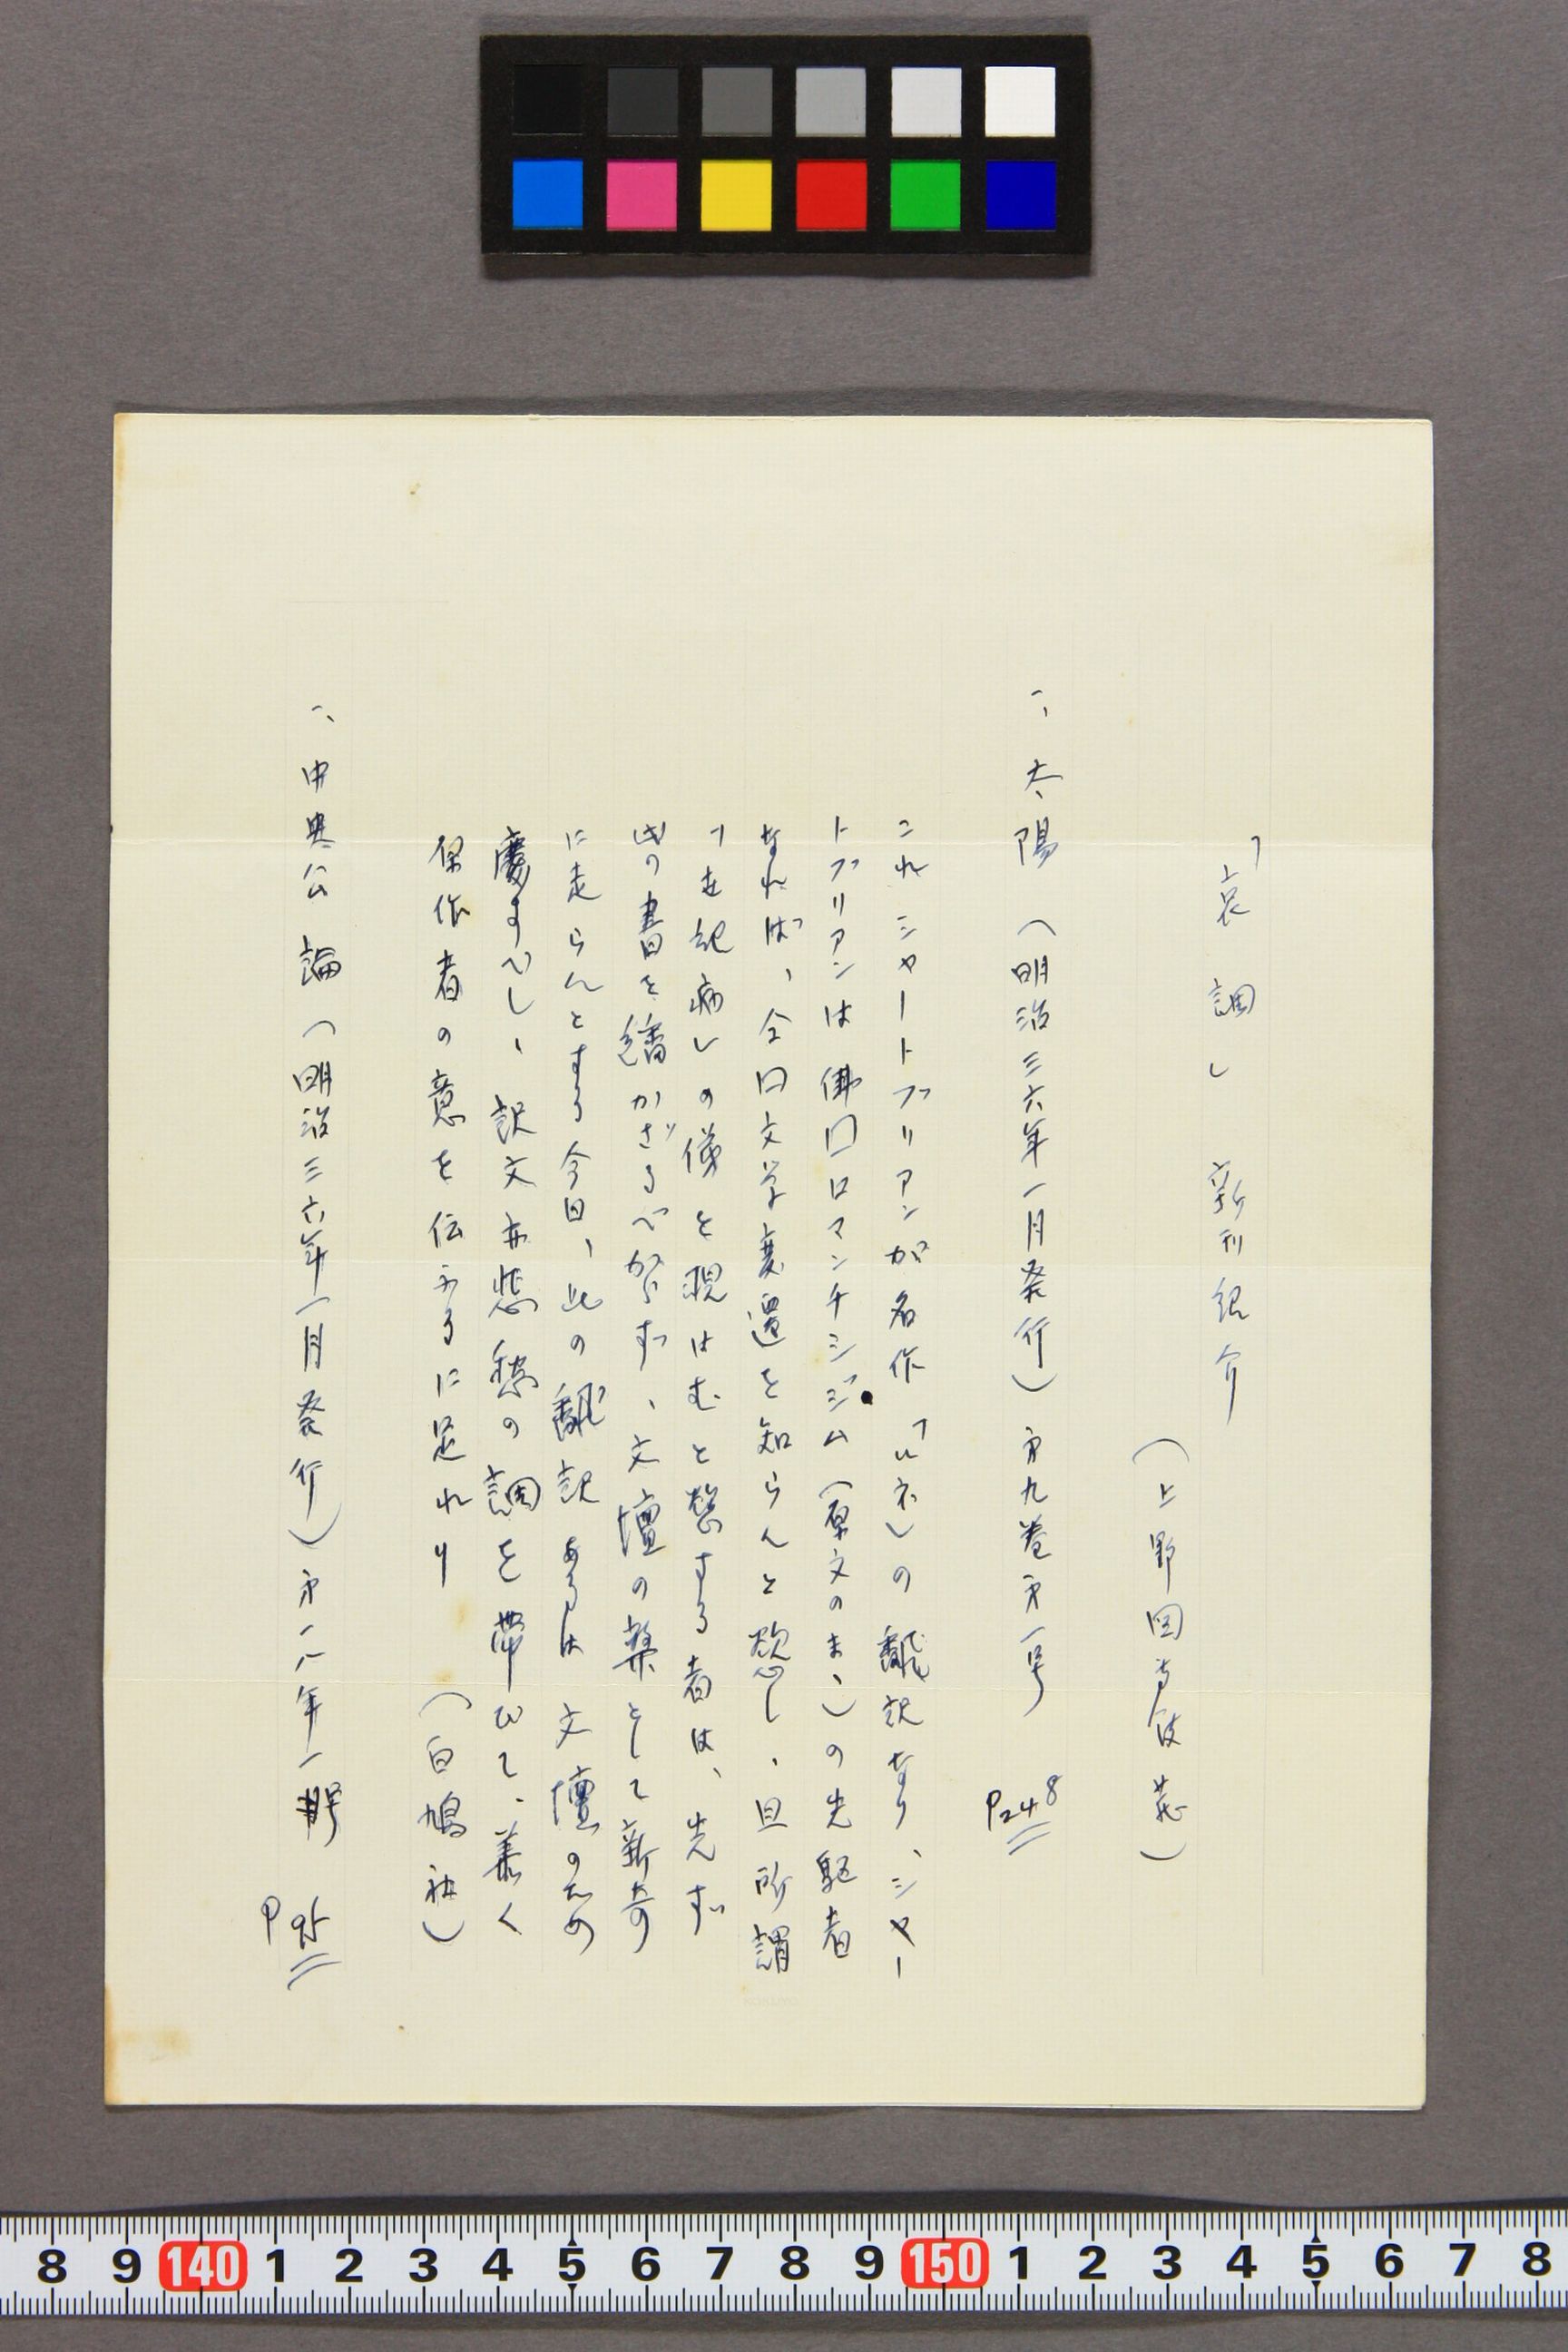 「哀調」 新刊紹介
(上野図書館蔵)
一、太陽 (明治三六年一月発行) 第九巻第一号 P248
これシャートブリアンが名作「ルネ」の飜訳なり、シャー
トブリアンは佛国ロマンチシジム(原文のまゝ)の先駆者
なれば、全国文学変遷を知らんと慾し、且所謂
「世紀病」の俤を現はむと慾する者は、先ず
此の書を繙かざるべからず、文壇の弊として新奇
に走らんとする今日、此の飜訳あるは文壇のため
慶すべし、訳文亦悲愁の調を帯びて、善く
原作者の意を伝ふるに足れり (白鳩社)
一、中央公論 (明治三六年一月発行)第一八年一号 P95